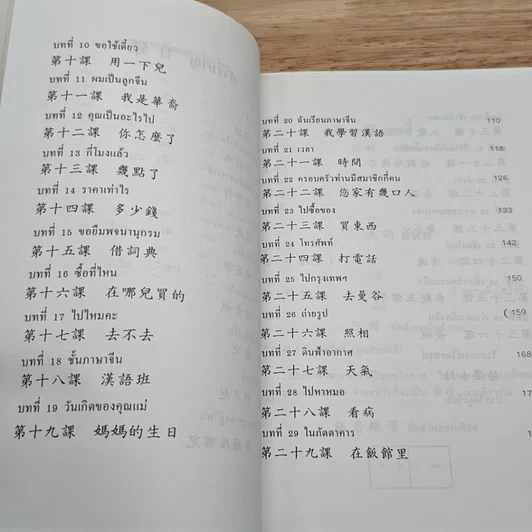 บทที่ 10 ขอใช้เดี๋ยว
第十課 用一下兒
บทที่ 11 ผมเป็นลูกจีน
第十一課 我是華裔
บทที่ 12 คุณเป็นอะไรไป
第十二課 你怎麼了
บทที่ 13 กี่โมงแล้ว
第十三課 幾點了
บทที่ 14 ราคาเท่าไร
第十四課 多少錢
บทที่ 15 ขอยืมพจนานุกรม
第十五課 借詞典
บทที่ 16 ซื้อที่ไหน
第十六課 在哪兒買的
บทที่ 17 ไปไหมคะ
第十七課 去不去
บทที่ 18 ชั้นภาษาจีน
第十八課 漢語班
บทที่ 19 วันเกิดของคุณแม่
第十九課 媽媽的生日
บทที่ 20 ฉันเรียนภาษาจีน 110
第二十課 我學習漢語
บทที่ 21 เวลา 118
第二十一課 時間
บทที่ 22 ครอบครัวท่านมีสมาชิกกี่คน 126
第二十二課 您家有幾口人
บทที่ 23 ไปซื้อของ 133
第二十三課 買東西
บทที่ 24 โทรศัพท์ 142
第二十四課 打電話
บทที่ 25 ไปกรุงเทพฯ 150
第二十五課 去曼谷
บทที่ 26 ถ่ายรูป (159
第二十六課 照相
บทที่ 27 ดินฟ้าอากาศ 168
第二十七課 天氣
บทที่ 28 ไปหาหมอ
第二十八課 看病
บทที่ 29 ในภัตตาคาร
第二十九課 在飯館里